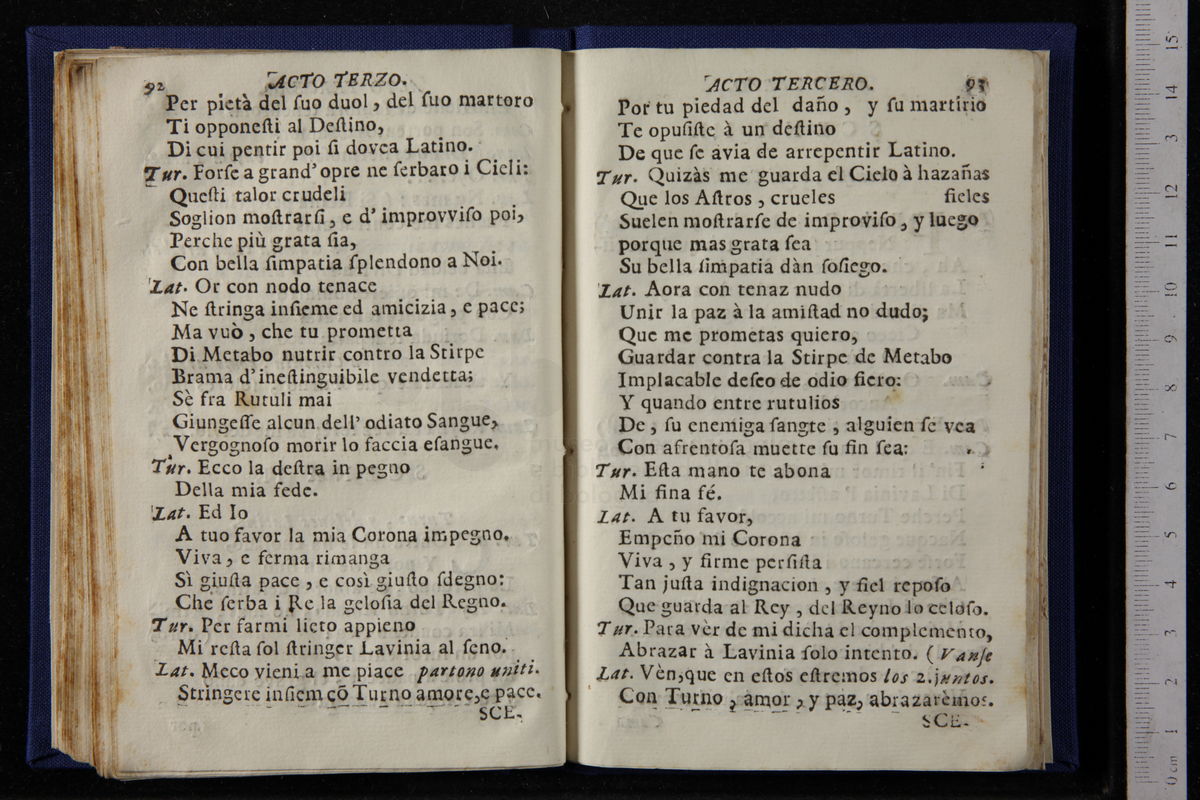 92 ACTO TERZO.
Per pietà del ſuo duol, del ſuo martoro
Ti opponeſti al Deſtino,
Di cui pentir poi ſi dovea Latino.
Tur. Forſe a grand' opre ne ſerbaro i Cieli:
Queſti talor crudeli
Soglion moſtrarſi, e d' improvviſo poi,
Perche più grata ſia,
Con bella ſimpatia ſplendono a Noi.
Lat. Or con nodo tenace
Ne ſtringa inſieme ed amicizia, e pace;
Ma vuò, che tu prometta
Di Metabo nutrir contro la Stirpe
Brama d' ineſtinguibile vendetta;
Sè fra Rutuli mai
Giungeſſe alcun dell' odiato Sangue,
Vergognoſo morir lo faccia eſangue.
Tur. Ecco la deſtra in pegno
Della mia fede.
Lat. Ed Io
A tuo favor la mia Corona impegno.
Viva, e ferma rimanga
Sì giuſta pace, e così giuſto ſdegno:
Che ſerba i Re la geloſia del Regno.
Tur. Per farmi lieto appieno
Mi reſta ſol ſtringer Lavinia al ſeno.
Lat. Meco vieni a me piace partono uniti.
Stringere inſiem cō Turno amore, e pace.
SCE-
ACTO TERCERO. 93
Por tu piedad del daño, y ſu martirio
Te opuſiſte à un deſtino
De que ſe avia de arrepentir Latino.
Tur. Quizàs me guarda el Cielo à hazañas
Que los Aſtros, crueles fieles
Suelen moſtrarſe de improviſo, y luego
porque mas grata ſea
Su bella ſimpatia dàn ſoſiego.
Lat. Aora con tenaz nudo
Unir la paz à la amiſtad no dudo;
Que me prometas quiero,
Guardar contra la Stirpe de Metabo
Implacable deſeo de odio fiero:
Y quando entre rutulios
De, ſu enemiga ſangte, alguien ſe vea
Con afrentoſa muette ſu fin ſea:
Tur. Eſta mano te abona
Mi fina fé.
Lat. A tu favor,
Empeño mi Corona
Viva, y firme perſiſta
Tan juſta indignacion, y fiel repoſo
Que guarda al Rey, del Reyno lo celoſo.
Tur. Para vèr de mi dicha el complemento,
Abrazar à Lavinia ſolo intento. (Vanſe
Lat. Vèn, que en eſtos eſtremos los 2. juntos.
Con Turno, amor, y paz, abrazarèmos.
SCE-
0 cm 1 2 3 4 5 6 7 8 9 10 11 12 13 14 15